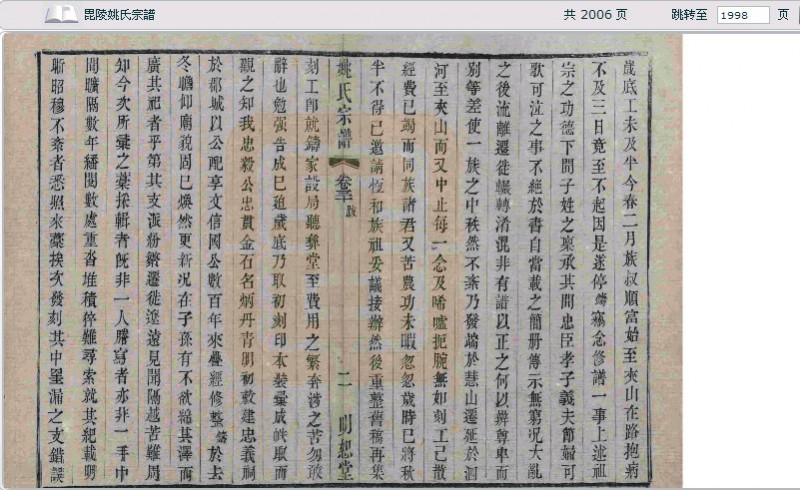 毘陵姚氏宗譜
共 2006 页
跳转至 1998 页
歲底工未及半今春二月族叔順富始至夾山在路抱病
不及三日竟至不起因是遂停鑄竊念修譜一事上述祖
宗之功德下開子姓之稟承其間忠臣孝子義夫節婦可
歌可泣之事不絕於書自當載之簡冊傳示無窮況大亂
之後流離遷徙輾轉淆混非有譜以正之何以辨尊卑而
別等差使一族之中秩然不紊乃發端於慧山遷延於洄
河至夾山而又中止每一念及唏噓扼腕無如刻工已散
經費已竭而同族諸君又苦農功未暇忽忽歲時已將秋
半不得已邀請恆和族祖妥議接辦然後重整舊稿再集
姚氏宗譜 卷三 二 則恕堂
刻工即就鑄家設局聽彝堂至費用之繁奔涉之苦勿敢
辭也勉强告成已迫歲底乃取初刻印本裝彙成帙取而
觀之知我忠毅公忠貫金石名炳丹青明初敕建忠義祠
於郡城以公配享文信國公數百年來疊經修整鑄於去
冬瞻仰廟貌固已煥然更新况在子孫有不欲綿其澤而
廣其祀者乎第其支派紛繁遷徙遼遠見聞隔越苦難周
知今次所彙之藁採輯者旣非一人謄寫者亦非一手中
間曠隔數年繙閱數處重沓堆積猝難尋索就其紀載明
晰昭穆不紊者悉照來藁挨次發刻其中罣漏之支錯誤